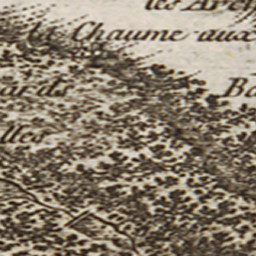 les Arch
La Chaume aux
ards
Ba
lles